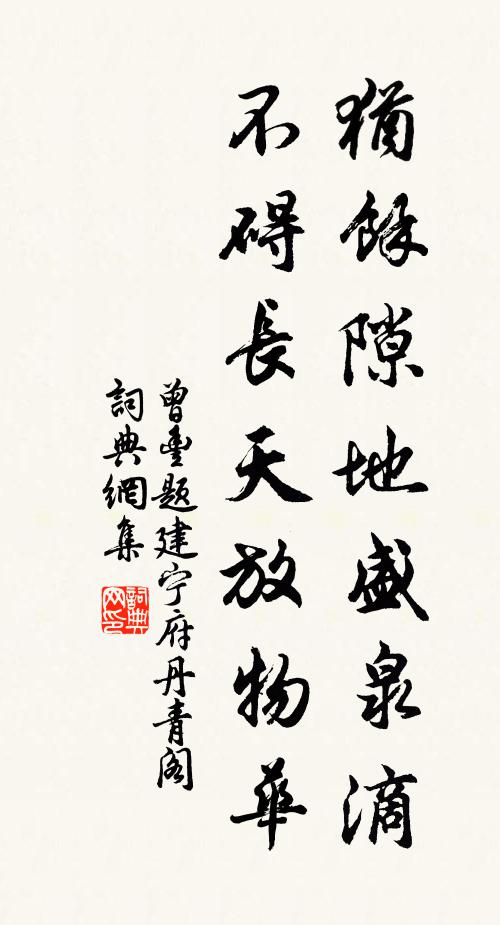 猶餘隙地盛泉滴
不碍長天放物華
曾豐題建宁府丹青阁
詞典網集
詞典
网印